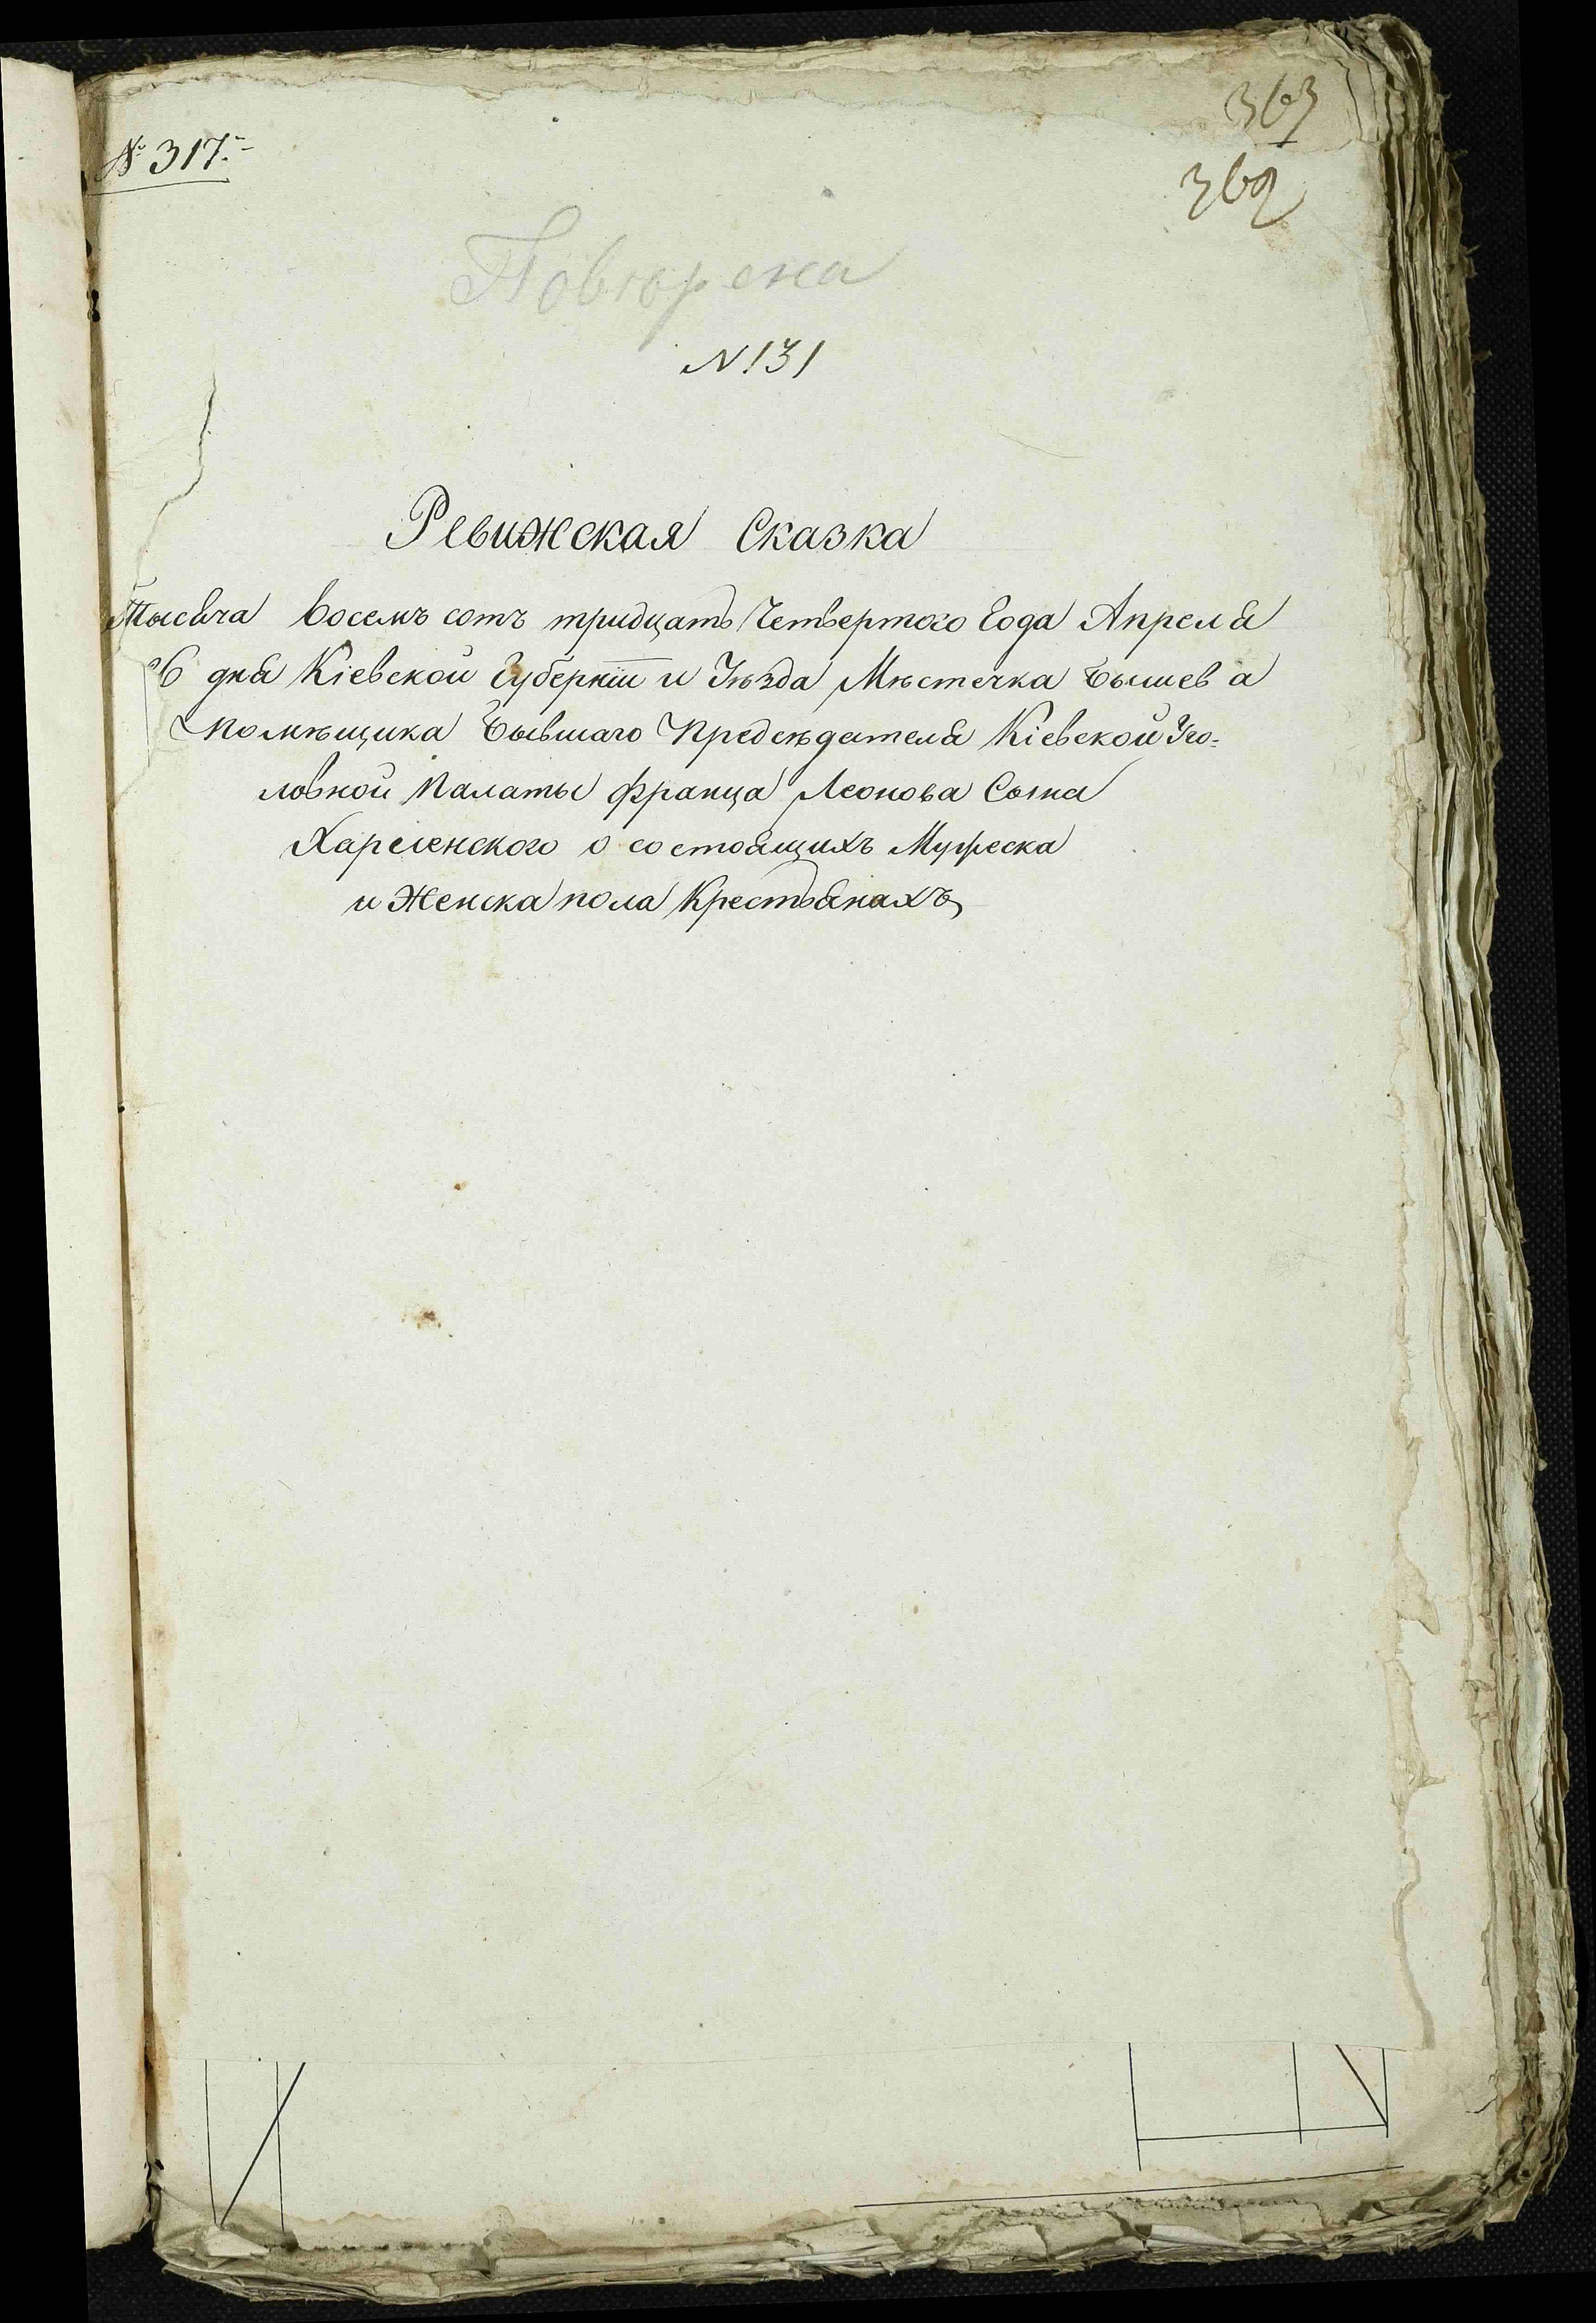 № 317.
363
362
Повторена
N 131
Ревижская Сказка
Тысяча восемъ сотъ тридцать Четвертого Года Апреля
26 дня Кіевской Губерніи и Уѣзда Мѣстечка Бышева
Помѣщика Бывшаго Предсѣдателя Кіевской Уго=
ловной Палаты Франца Леонова Сына
о состоящихъ Мужеска
и Женска пола Крестьянахъ